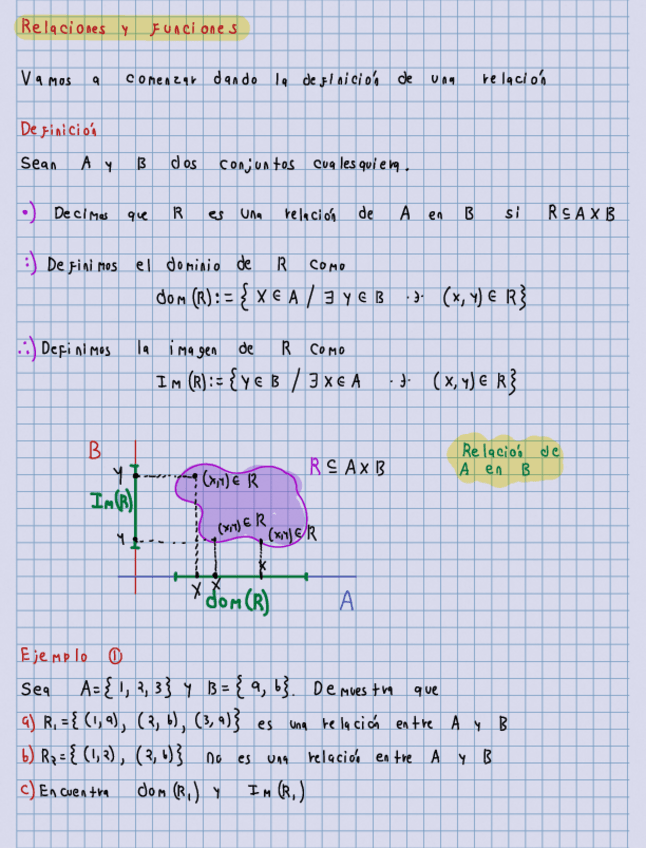 Relaciones y Funciones
Vamos a comenzar dando la definición de una relación
Definición
Sean A y B dos conjuntos cualesquiera.
•) Decimos que R es una relación de A en B si R ⊆ A X B
:) Definimos el dominio de R como
dom (R) := { X ∈ A / ∃ Y ∈ B ·∋· (x, y) ∈ R}
∴) Definimos la imagen de R como
Im (R) := {Y ∈ B / ∃ X ∈ A ·∋· (x, y) ∈ R}
B
Y
(x,y) ∈ R
R ⊆ A X B
Relación de
A en B
Im(R)
Y
(x,y) ∈ R
(x,y) ∈ R
X X X
dom(R)
A
Ejemplo ①
Sea A = { 1, 2, 3} y B = { a, b}. Demuestra que
a) R₁ = { (1, a), (2, b), (3, a)} es una relación entre A y B
b) R₂ = { (1, 2), (2, b)} no es una relación entre A y B
c) Encuentra dom (R₁) y Im (R₁)